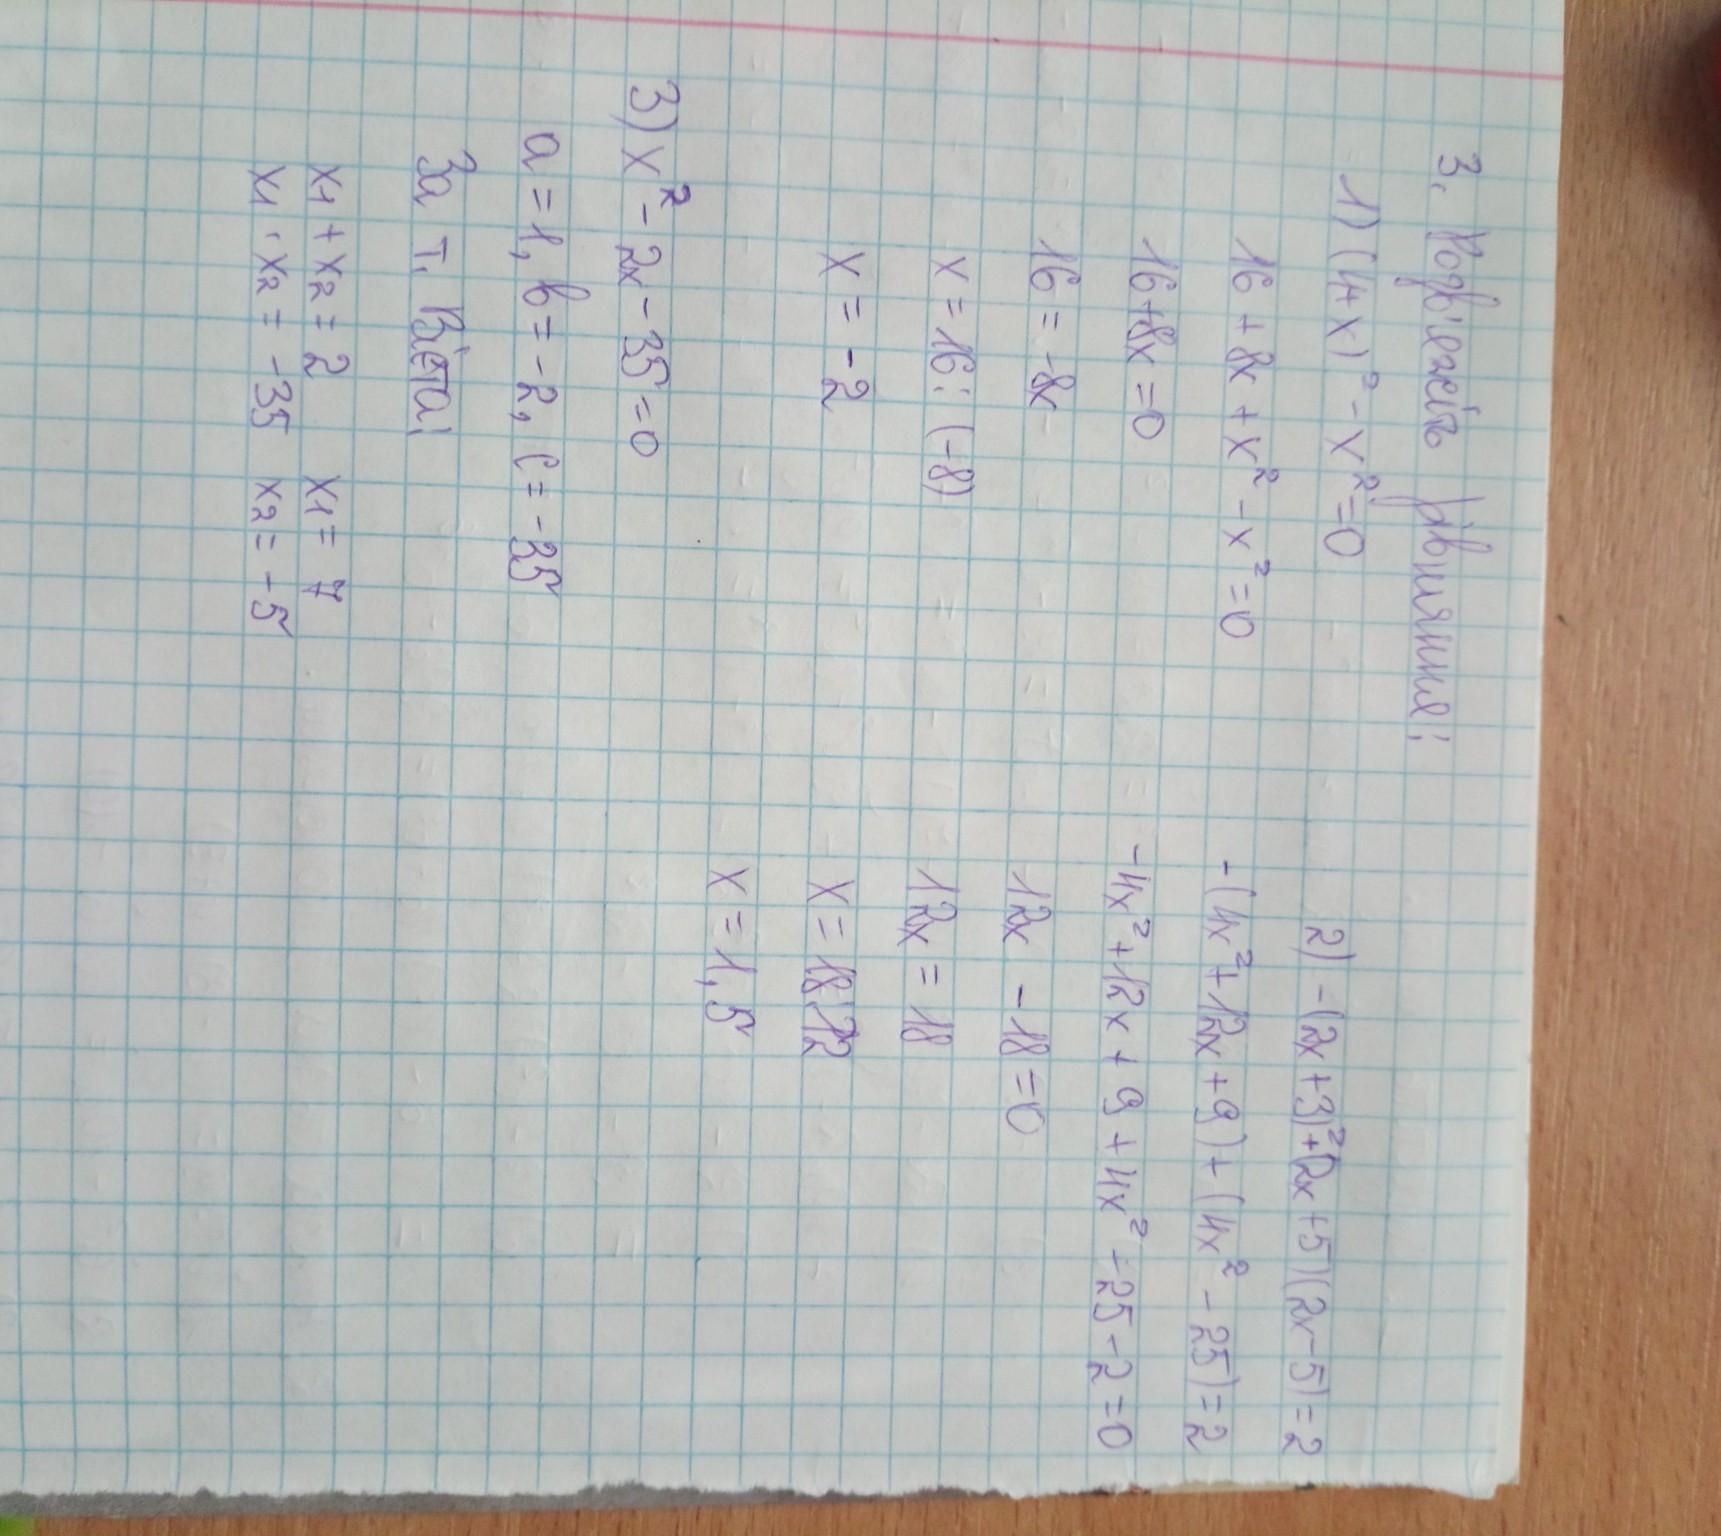 3. Розв'яжіть рівняння:
1) (4+x)² - x² = 0
16 + 8x + x² - x² = 0
16+8x = 0
16 = -8x
x = 16 : (-8)
x = -2
2) -(2x+3)²+(2x+5)(2x-5)=2
-(4x²+12x+9)+(4x²-25)=2
-4x²+12x+9+4x²-25-2=0
12x - 18 = 0
12x = 18
x = 18:12
x = 1,5
3) x² - 2x - 35 = 0
a = 1, b = -2, c = -35
За т. Вієта:
x₁ + x₂ = 2 x₁ = 7
x₁ · x₂ = -35 x₂ = -5